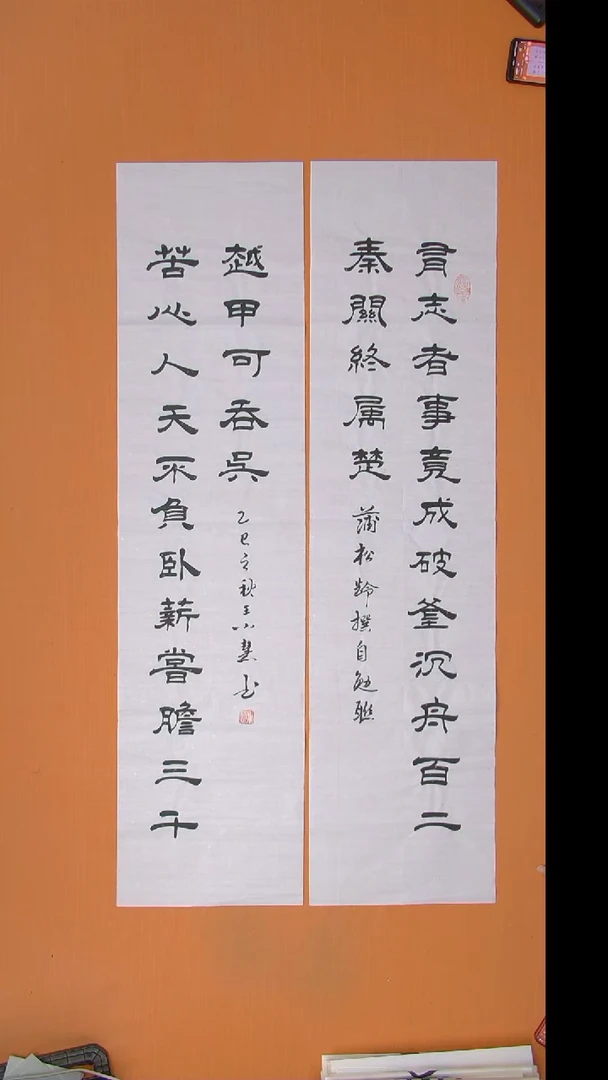 有志者事竟成破釜沉舟百二
秦關終属楚
蒲松齡撰自勉聯
苦心人天不負卧薪嘗膽三千
越甲可吞吳
乙巳立秋王小慧书